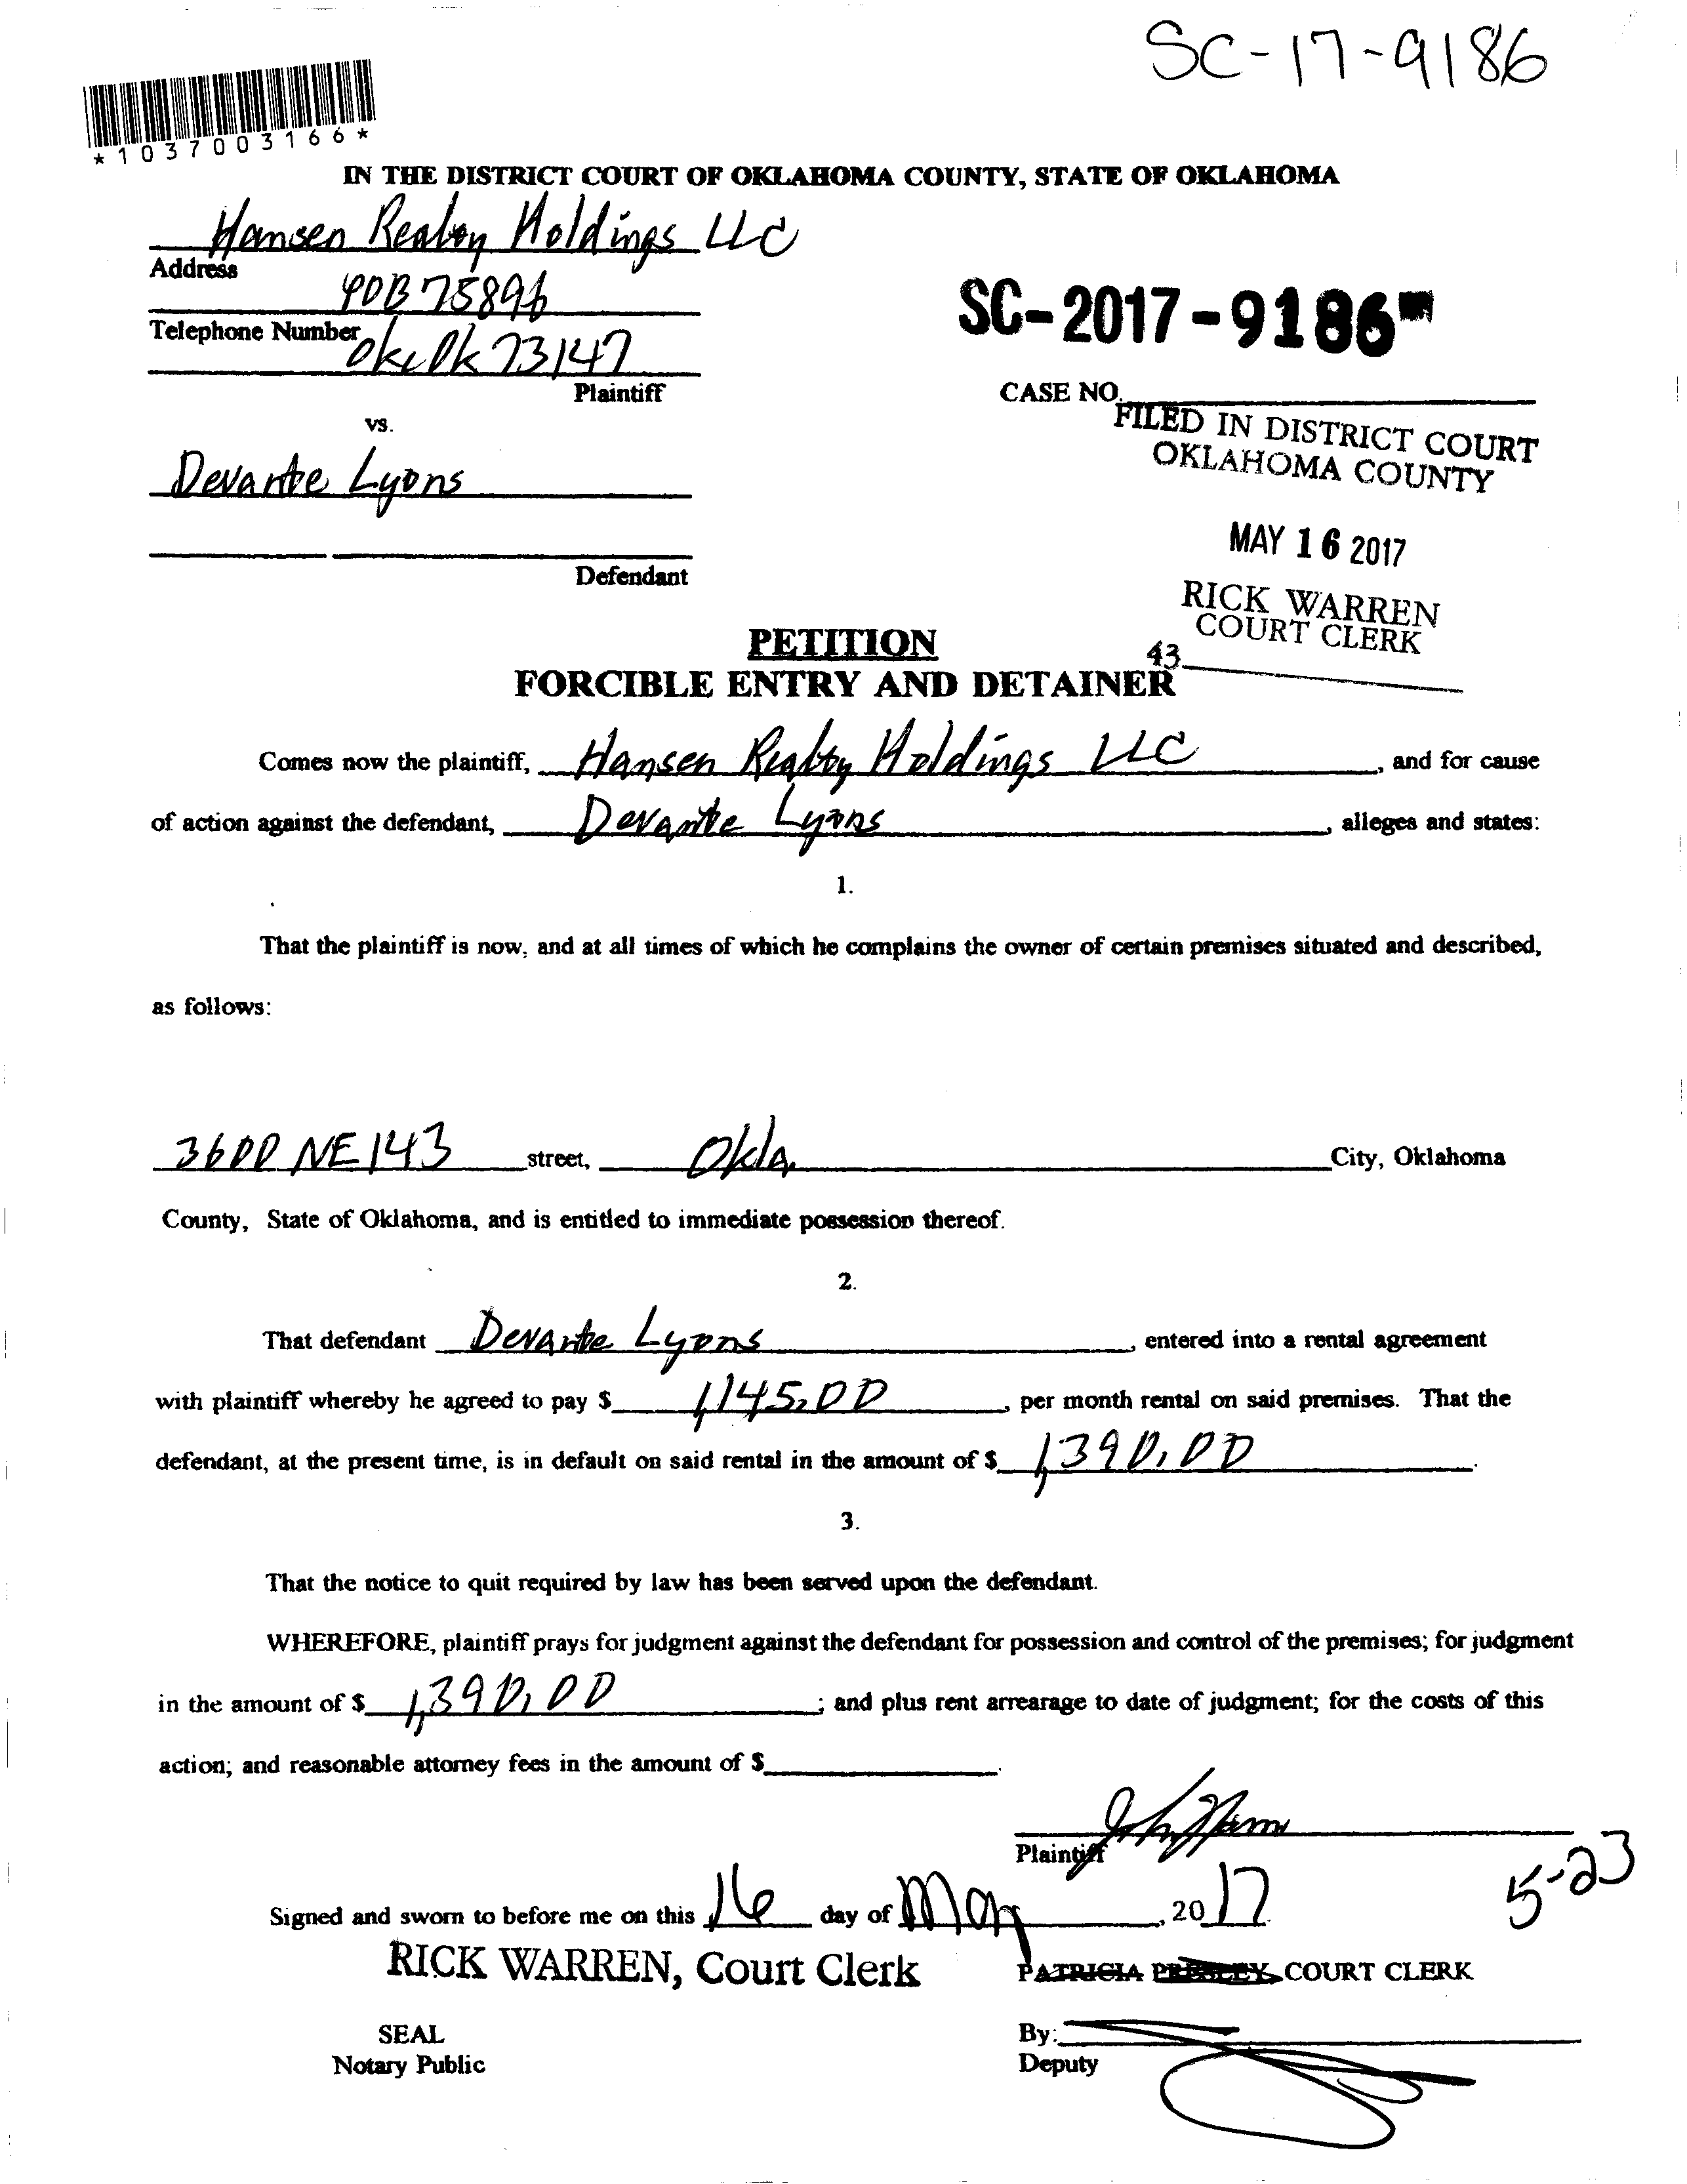 SC-17-9186
*1037003166*
IN THE DISTRICT COURT OF OKLAHOMA COUNTY, STATE OF OKLAHOMA
Hansen Realty Holdings LLC
Address
POB 75896
Telephone Number
Okc Ok 73147
Plaintiff
SC-2017-9186
CASE NO.
vs.
FILED IN DISTRICT COURT
OKLAHOMA COUNTY
Devante Lyons
MAY 16 2017
Defendant
RICK WARREN
COURT CLERK
43
PETITION
FORCIBLE ENTRY AND DETAINER
Comes now the plaintiff, Hansen Realty Holdings LLC, and for cause
of action against the defendant, Devante Lyons, alleges and states:
1.
That the plaintiff is now, and at all times of which he complains the owner of certain premises situated and described,
as follows:
3600 NE 143 street, Okla. City, Oklahoma
County, State of Oklahoma, and is entitled to immediate possession thereof.
2.
That defendant Devante Lyons, entered into a rental agreement
with plaintiff whereby he agreed to pay $ 1,145.00, per month rental on said premises. That the
defendant, at the present time, is in default on said rental in the amount of $ 1,390.00.
3.
That the notice to quit required by law has been served upon the defendant.
WHEREFORE, plaintiff prays for judgment against the defendant for possession and control of the premises; for judgment
in the amount of $ 1,390.00; and plus rent arrearage to date of judgment; for the costs of this
action; and reasonable attorney fees in the amount of $ .
Plaintiff
5-23
Signed and sworn to before me on this 16 day of May, 2017
RICK WARREN, Court Clerk
PATRICIA PRESLEY, COURT CLERK
SEAL
Notary Public
By:
Deputy